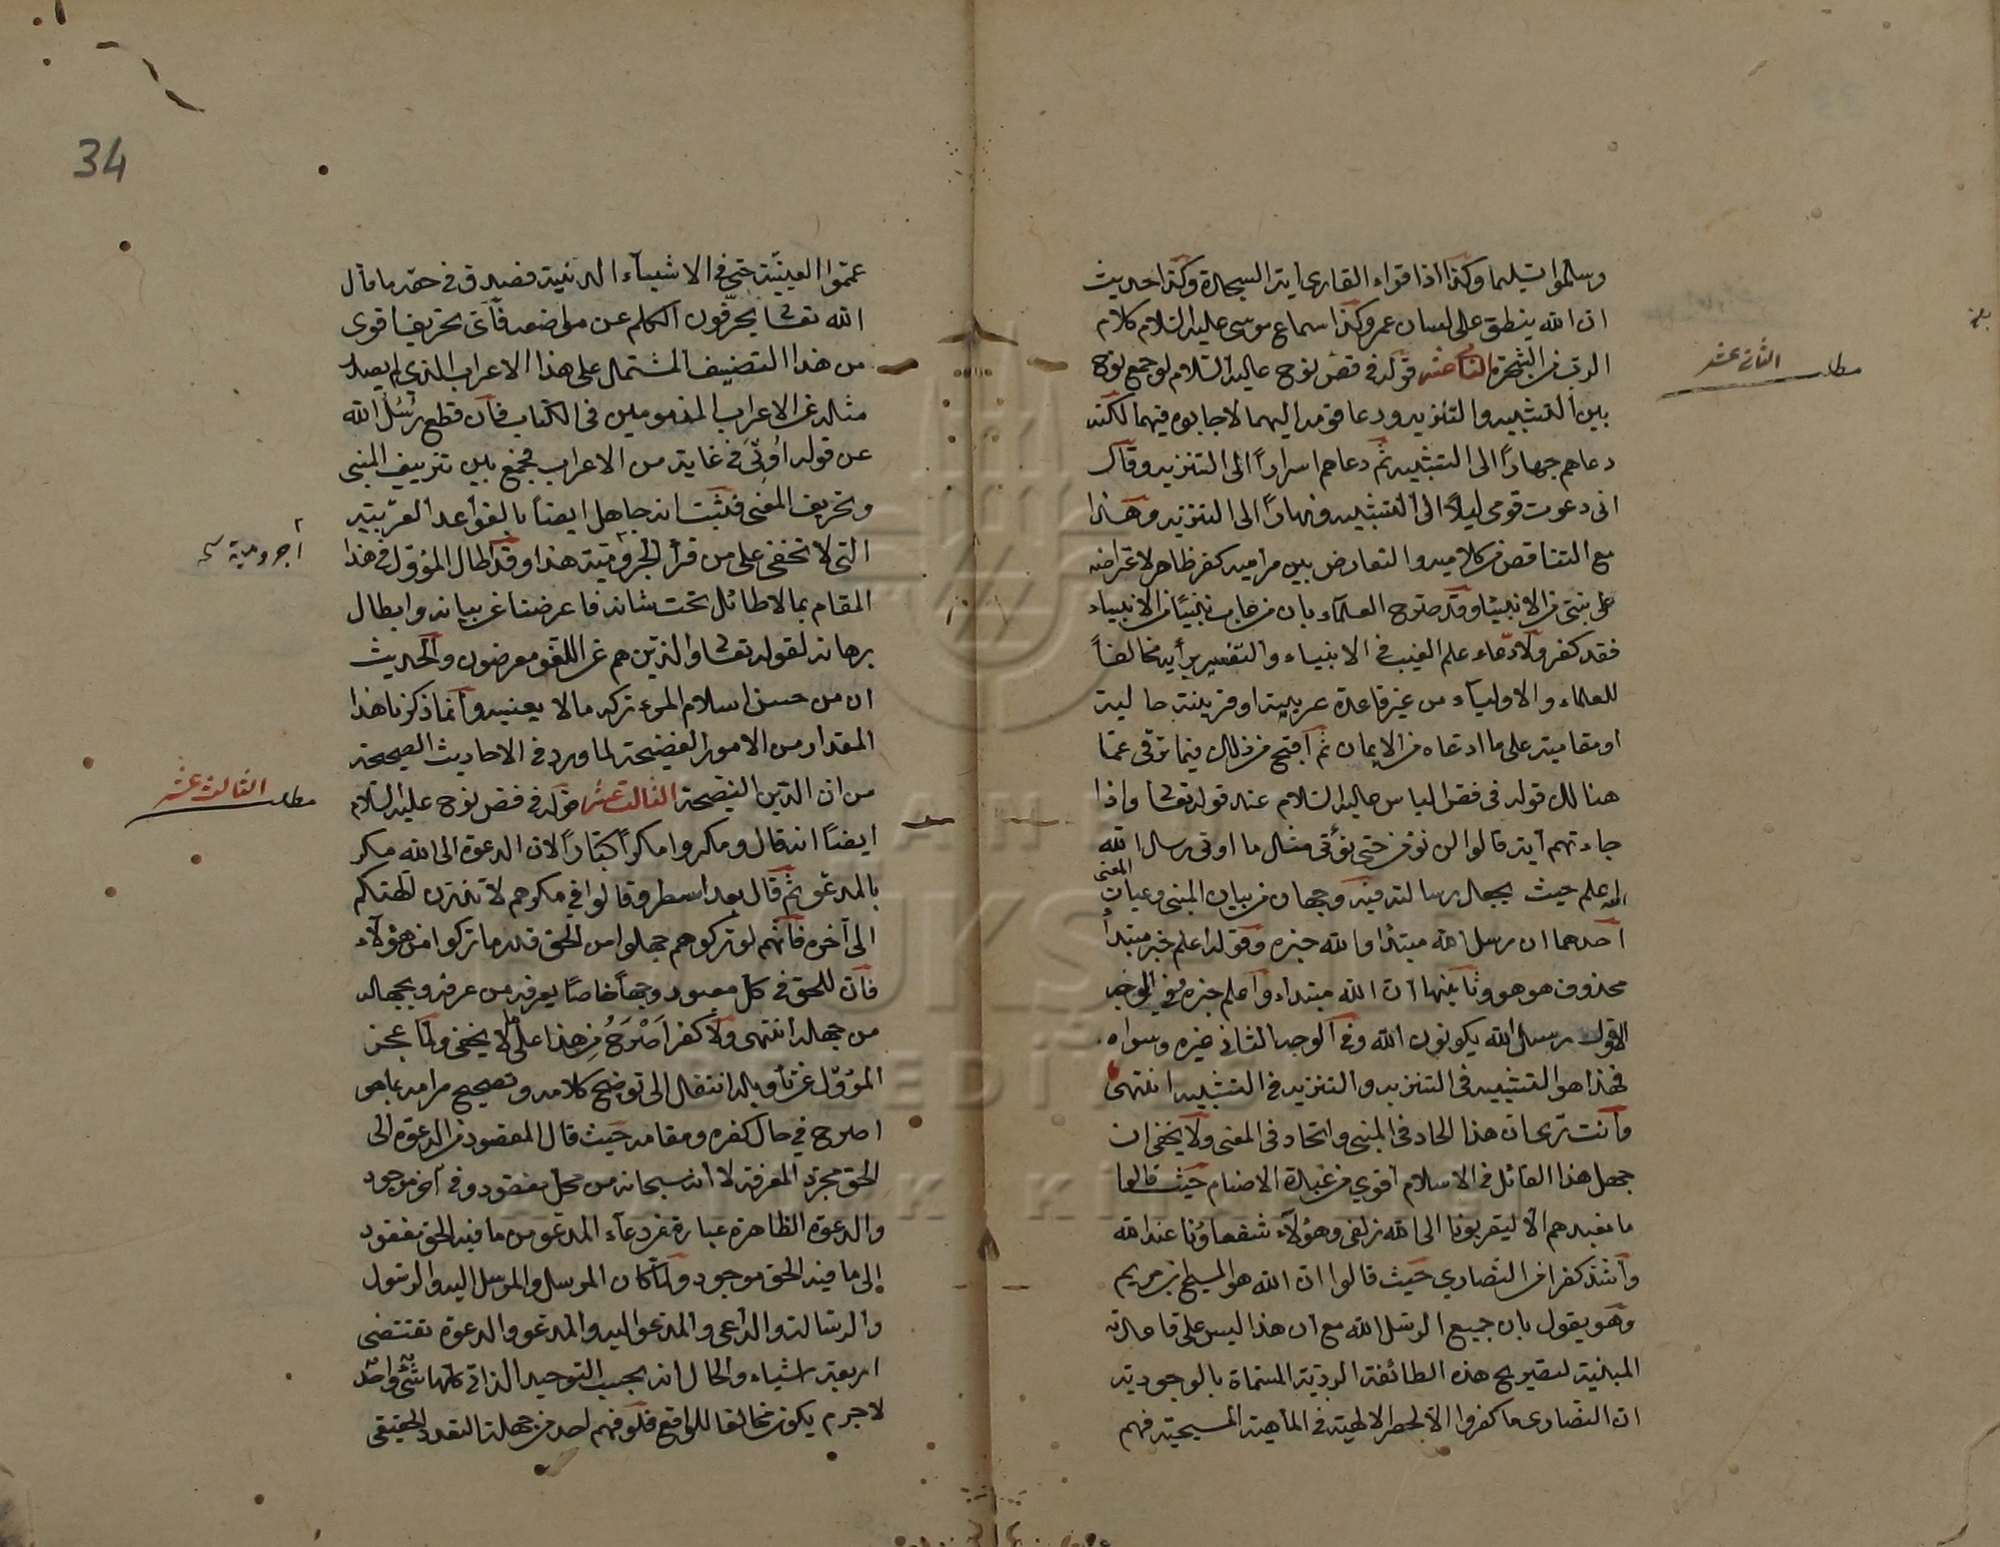 وسلموا تسليما وكذا اذا قراء القارى آية السجدة وكذا حديث
ان الله ينطق على لسان عمر وكذا سماع موسى عليه السلام كلام
الرب من الشجرة الثانى عشر قوله فى فص نوح عليه السلام لو جمع نوح
مطلب الثانى عشر
بين التشبيه والتنزيه ودعا قومه اليهما لاجابوه فيهما لكنه
دعاهم جهارًا الى التشبيه ثم دعاهم اسرارًا الى التنزيه وقال
انى دعوت قومى ليلًا الى التشبيه ونهارًا الى التنزيه وهذا
مع التناقض من كلاميه والتعارض بين مراميه كفر ظاهر لاعتراضه
على نبى من الانبيا وقد صرح العلماء بان من عاب نبيًا من الانبياء
فقد كفر ولادعاء علم الغيب فى الانبياء والتفسير برأيه مخالفًا
للعلماء والاولياء من غير قاعدة عربية او قرينة حالية
او مقامية على ما ادعاه من الايمان ثم اقبح من ذلك فيما ترقى عما
هنالك قوله فى فص الياس عليه السلام عند قوله تعالى واذا
جاءتهم آية قالوا لن نؤمن حتى نؤتى مثل ما اوتى رسل الله
الله اعلم حيث يجعل رسالته فيه وجهان من بيان المبنى وعيان المعنى
احدهما ان رسل الله مبتدأ والله خبره وقوله اعلم خبر مبتدأ
محذوف هو هو وثانيهما ان الله مبتداء واعلم خبره ففى الوجه
الاول رسل الله يكونون الله وفى الوجه الثانى غيره وسواه
فهذا هو التشبيه فى التنزيه والتنزيه فى التشبيه انتهى
وانت ترى ان هذا الحاد فى المبنى واتحاد فى المعنى ولا يخفى ان
جهل هذا القائل فى الاسلام اقوى من عبدة الاصنام حيث قالوا
ما نعبدهم الا ليقربونا الى الله زلفى وهؤلاء شفعاؤنا عند الله
واشد كفرا من النصارى حيث قالوا ان الله هو المسيح بن مريم
وهو يقول بان جميع الرسل الله مع ان هذا ليس على قاعدته
المبنية لتصريح هذه الطائفة الردية المسماة بالوجودية
ان النصارى ما كفروا الا لحصر الالهية فى الماهية المسيحية فهم
34
عمموا العينية حتى فى الاشياء الدنية فصدق فى حقه ما قال
الله تعالى يحرفون الكلم عن مواضعه فأتى تحريف اقوى
من هذا التصنيف المشتمل على هذا الاعراب الذى لم يصدر
مثله عن الاعراب المذمومين فى الكتاب فان قطع رسل الله
عن قوله اوتى فى غاية من الاعراب فجمع بين تزييف المبنى
وتحريف المعنى فثبت انه جاهل ايضا بالقواعد العربية
التى لا تخفى على من قرأ الجرومية هذا وقد اطال المؤول فى هذا
آجرومية
المقام بما لا طائل تحت شانه فاعرضنا عن بيانه وابطال
برهانه لقوله تعالى والذين هم عن اللغو معرضون والحديث
ان من حسن اسلام المرء تركه ما لا يعنيه وانما ذكرنا هذا
المقدار من الامور الفضيحة لما ورد فى الاحاديث الصحيحة
من ان الدين النصيحة الثالث عشر قوله فى فص نوح عليه السلام
مطلب الثالث عشر
ايضًا انه قال ومكروا مكرًا كبّارًا لان الدعوة الى الله مكر
بالمدعو ثم قال بعد اسطر وقالوا فى مكرهم لا تذرن آلهتكم
الى آخره فانهم لو تركوهم جهلوا من الحق قدر ما تركوا من هؤلاء
فان للحق فى كل معبود وجهًا خاصًا يعرفه من عرفه ويجهله
من جهله انتهى ولا كفر اصرح من هذا على ما لا يخفى ولما عجز
المؤول عن تأويله انتقل الى توضيح كلامه وتصحيح مرامه بما هو
اصرح فى حال كفره ومقامه حيث قال المقصود من الدعوة الى
الحق مجرد المعرفة لا انه سبحانه من محل مفقود وفى آخر موجود
والدعوة الظاهرة عبارة عن دعاء المدعو من ما فيه الحق مفقود
الى ما فيه الحق موجود ولما كان المرسل والمرسل اليه والرسول
والرسالة والداعى والمدعو اليه والمدعو والدعوة تقتضى
اربعة اشياء والحال انه بحسب التوحيد الذاتى كلها شئ واحد
لا جرم يكون مخالفا للواقع فلو فهم احد من جملة التعدد الحقيقى